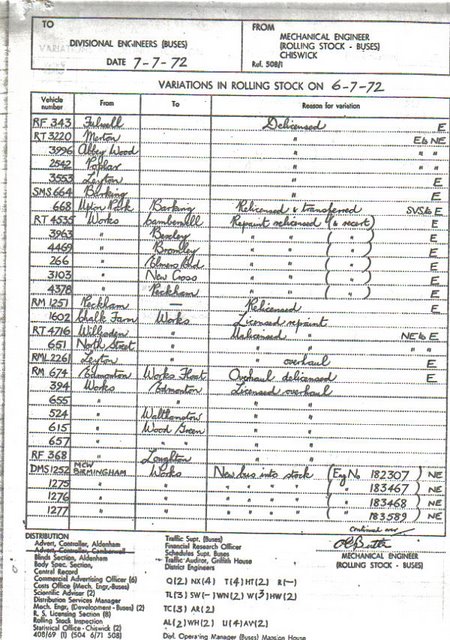 TO
FROM
DIVISIONAL ENGINEERS (BUSES)
MECHANICAL ENGINEER
(ROLLING STOCK - BUSES)
CHISWICK
DATE 7-7-72
Ref. 508/1
VARIATIONS IN ROLLING STOCK ON 6-7-72
Vehicle number From To Reason for variation
RF 343 Fulwell Delicensed E
RT 3220 Merton " E to NE
3996 Abbey Wood " " "
2542 Poplar " " "
3553 Leyton " E
SMS 664 Barking " E
668 Upton Park Barking Relicensed & transferred SVS to E
RT 4535 Works Camberwell Repaint relicensed (& recert) E
3963 " Bexley " " ( " ) E
4469 " Bromley " " ( " ) E
266 " Elmers End " " ( " ) E
3103 " New Cross " " ( " ) E
4378 " Peckham " " ( " ) E
RM 1251 Peckham — Relicensed E
1602 Chalk Farm Works Licensed repaint
RT 4716 Willesden " Unlicensed NE to E
651 North Street " " " "
RML 2261 Leyton " " overhaul E
RM 674 Edmonton Works Float Overhaul delicensed E
394 Works Edmonton Licensed overhaul
655 " " " "
524 " Walthamstow " "
615 " Wood Green " "
657 " " " "
RF 368 " Loughton " "
DMS 1252 MCW BIRMINGHAM Works New bus into stock (Eng No 182307) NE
1275 " " " " " " 183467) NE
1276 " " " " " " 183468) NE
1277 " " " " " " 183589) NE
continued over
DISTRIBUTION
Advert. Controller, Aldenham
Advert. Controller, Camberwell
Blinds Section, Aldenham
Body Spec. Section,
Central Record
Commercial Advertising Officer (6)
Costs Office (Mech. Engr.-Buses)
Scientific Adviser (2)
Distribution Services Manager
Mech. Engr. (Development - Buses) (2)
R. S. Licensing Section (8)
Rolling Stock Inspection
Statistical Office - Chiswick (2)
408/69 (1) (504 6/71 508)
Traffic Supt. (Buses)
Financial Research Officer
Schedules Supt. Buses
Traffic Auditor, Griffith House
District Engineers
Q(2) NX(4) T(4) HT(2) R(-)
TL(3) SW(-) WN(2) W(3) HW(2)
TC(3) AR(2)
AL(2) WH(2) U(4) AV(2)
Divl. Operating Manager (Buses) Mansion House
MECHANICAL ENGINEER
(ROLLING STOCK - BUSES)